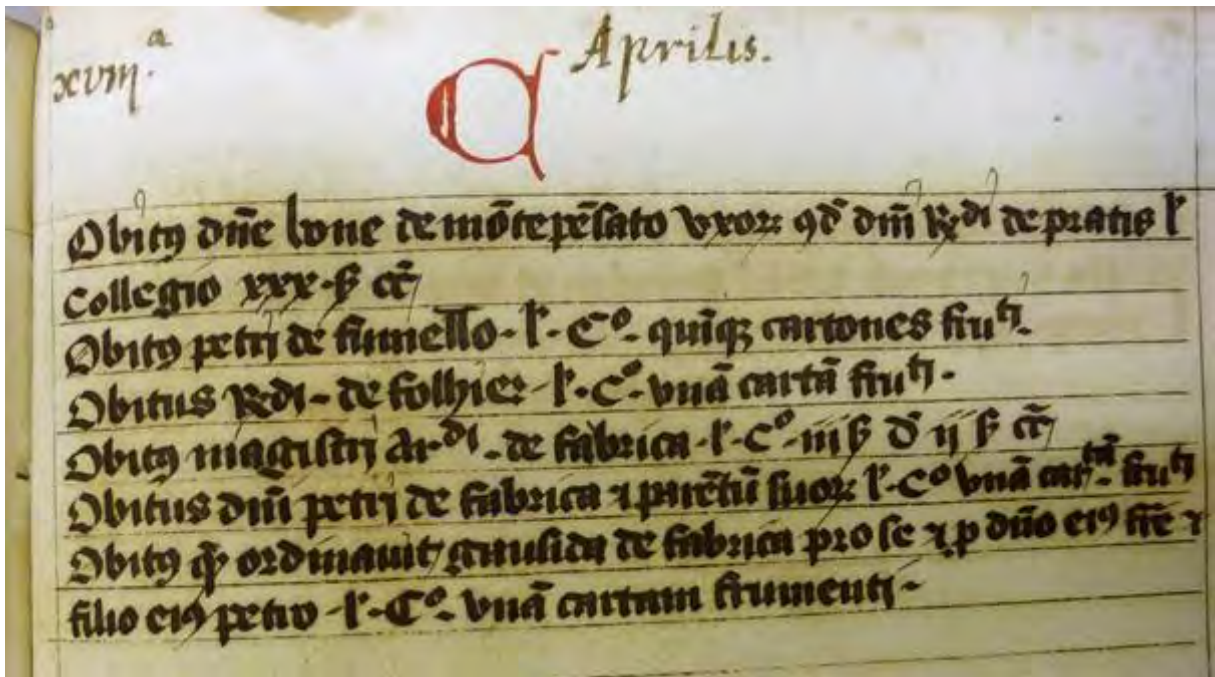 xviij.ª
Aprilis.
A
Obitꝯ dñe bone de mõtepẽsato vxoꝝ ꝙd dñi R̃di de pratis lˢ
Collegio xxx ß ct̃
Obitꝯ petri de fumello · l · Cº · quiqꝫ cartones fruti ·
Obitus Rdi · de folhier · l · Cº · vnã cartã fruti ·
Obitꝯ magistri Ardi · de fabrica · l · Cº · iii ß d ii ß ct̃
Obitus dñi petri de fabrica ⁊ parẽtũ suoꝝ l · Cº vnã cartã fruti
Obitꝯ ordinauit gausida de fabrica pro se ⁊ ꝑ dño eiꝯ fr̃e ⁊
filio eiꝯ petro · l · Cº · vnã cartam frumenti ·